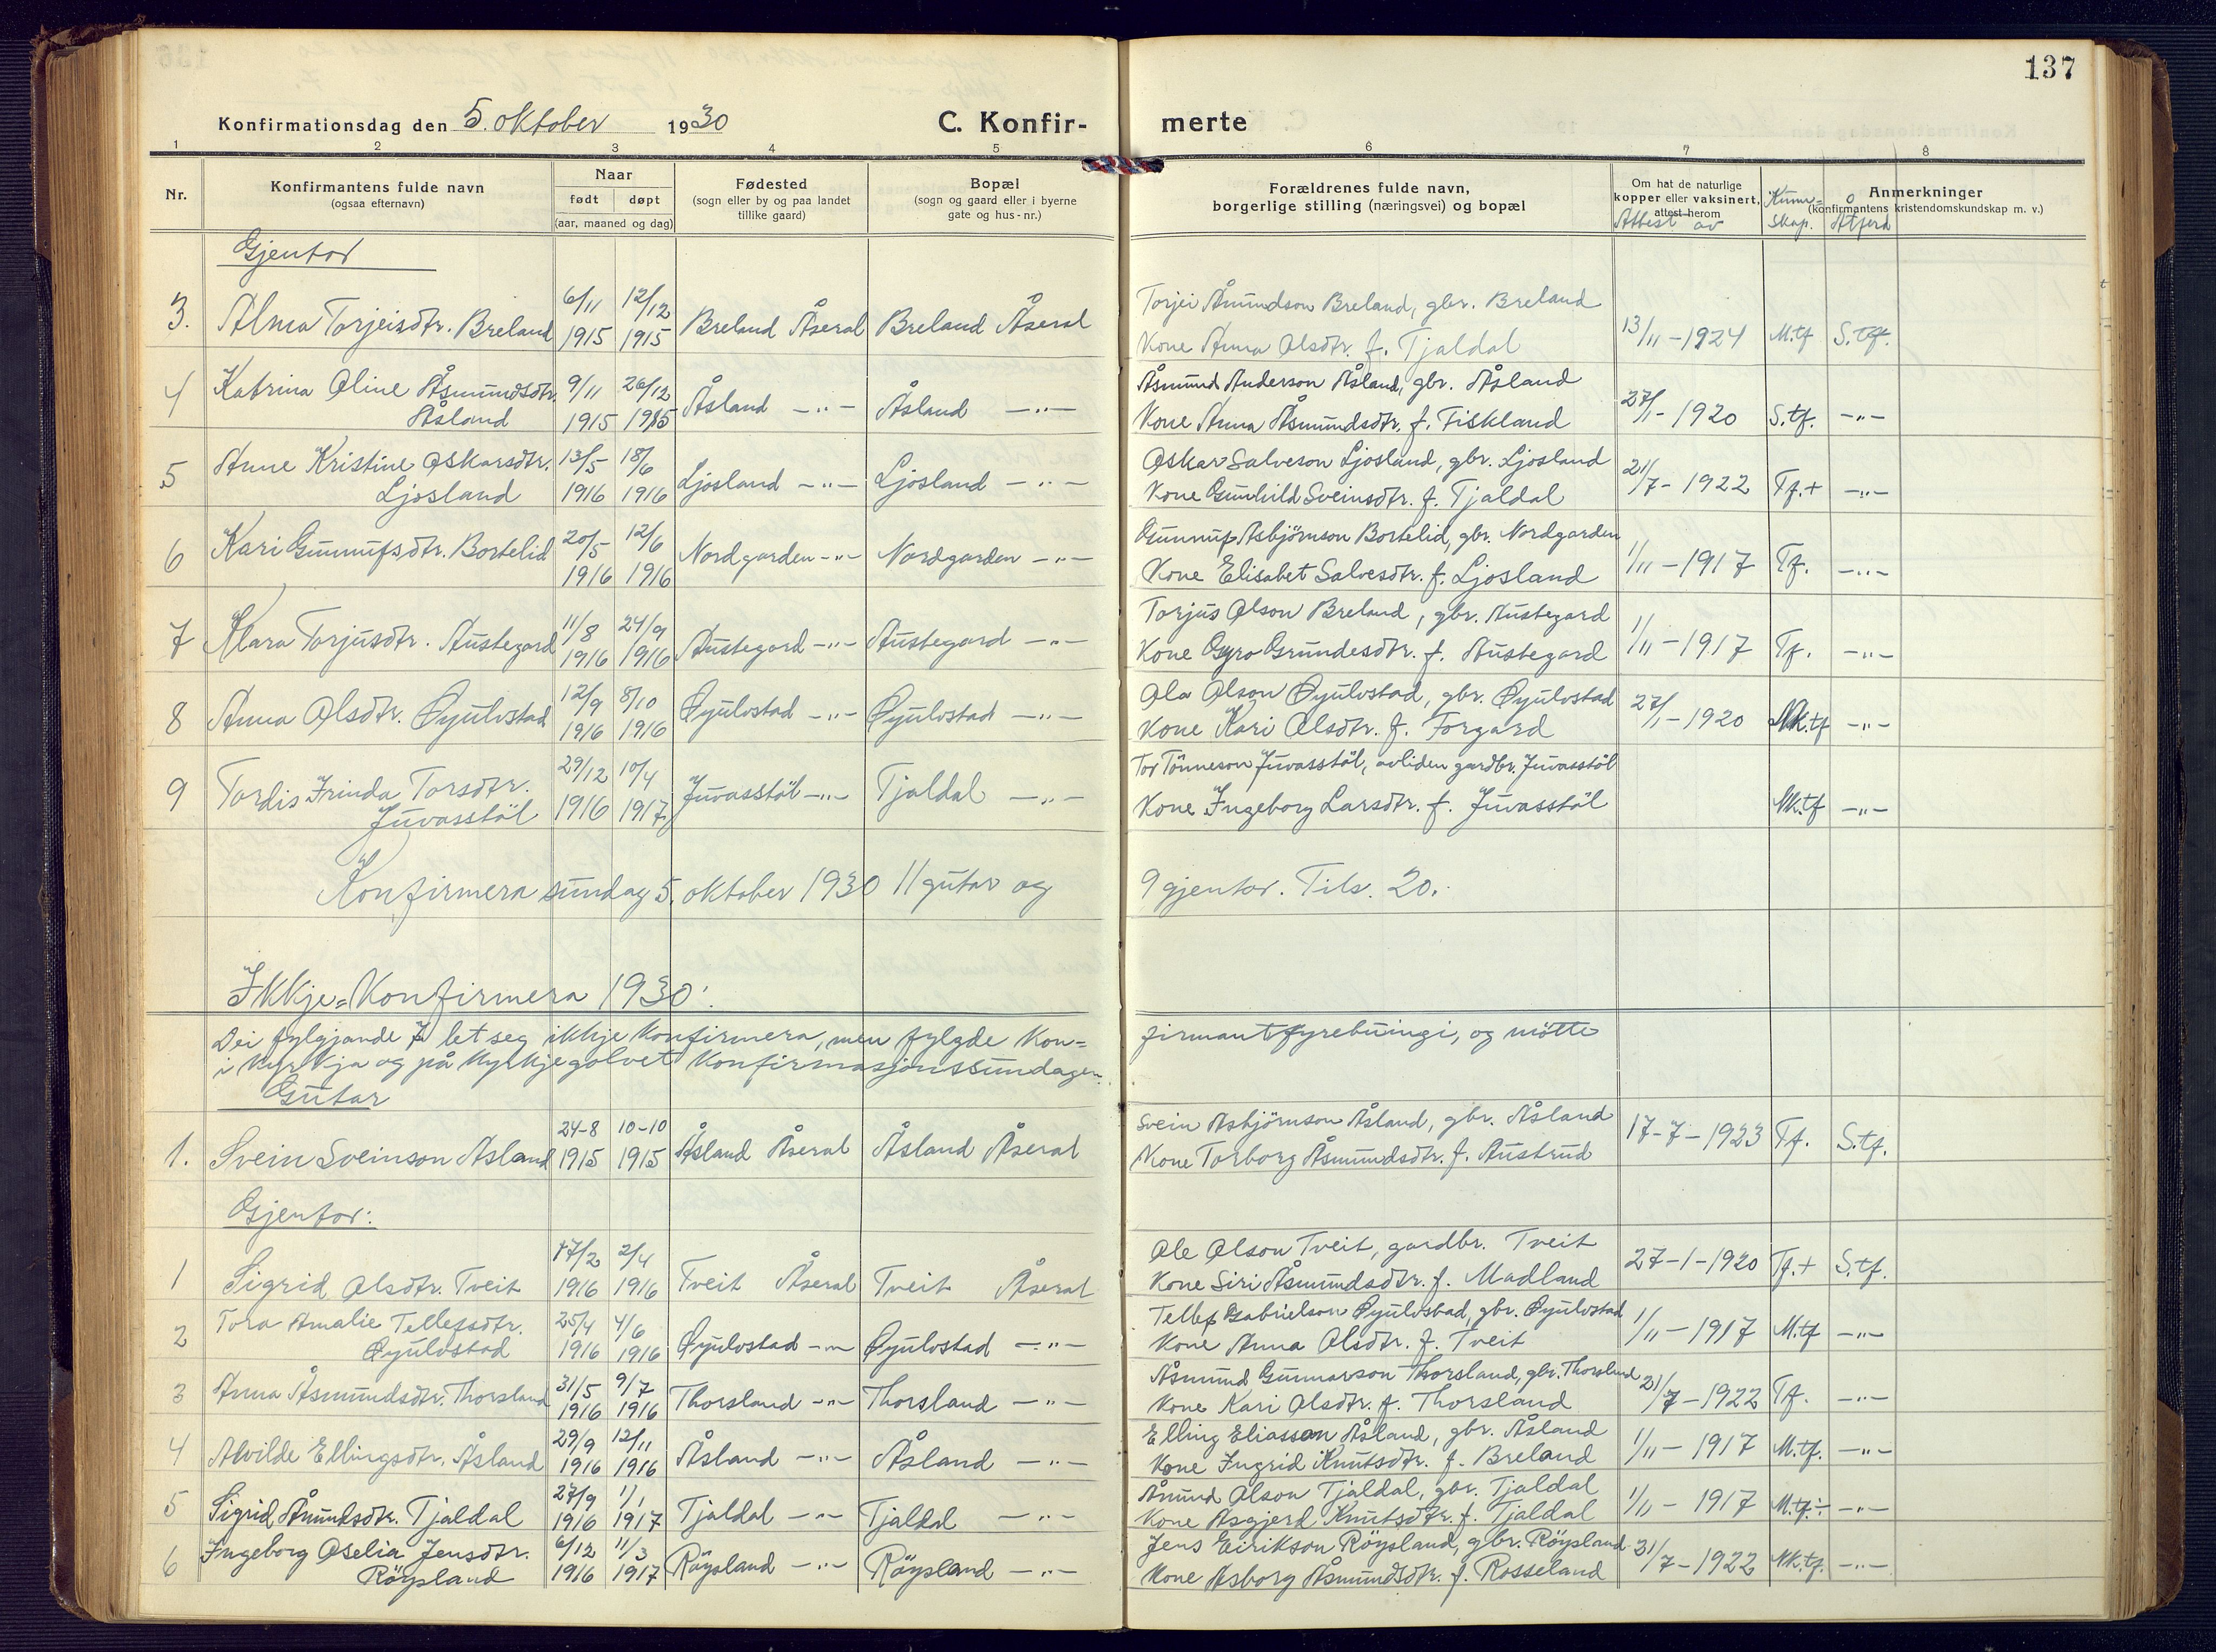 137
Konfirmationsdag den 5. oktober 1930 C. Konfirmerte
1 2 3 4 5 6 7 8
Nr. Konfirmantens fulde navn (ogsaa efternavn) Naar født døpt (aar, maaned og dag) Fødested (sogn eller by og paa landet tillike gaard) Bopæl (sogn og gaard eller i byerne gate og hus-nr.) Forældrenes fulde navn, borgerlige stilling (næringsvei) og bopæl Om hat de naturlige kopper eller vaksinert, attest herom Attest av Kunnskap. Åtferd Anmerkninger (konfirmantens kristendomskundskap m. v.)
Gjentor
3. Alma Torjeisdtr. Breland 6/11 1915 12/12 1915 Breland Åseral Breland Åseral Torjei Åmundson Breland, gbr. Breland
Kone Anna Olsdtr. f. Tjaldal 13/11-1924 M.tf S.tf.
4 Katrina Oline Åsmundsdtr. Åsland 9/11 1915 26/12 1915 Åsland -"- Åsland -"- Åsmund Anderson Åsland, gbr. Åsland
Kone Anna Åsmundsdtr. f. Fiskland 27/1-1920 S.tf. -"-
5 Anne Kristine Oskarsdtr. Ljosland 13/5 1916 18/6 1916 Ljosland -"- Ljosland -"- Oskar Salveson Ljosland, gbr. Ljosland
Kone Gunhild Sveinsdtr. f. Tjaldal 21/7-1922 Tf.+ -"-
6 Kari Gunnufsdtr. Bortelid 20/5 1916 12/6 1916 Nordgarden -"- Nordgarden -"- Gunnuf Asbjörnson Bortelid, gbr. Nordgarden
Kone Elisabet Salvesdtr. f. Ljosland 1/11-1917 Tf. -"-
7 Klara Torjusdtr. Austegard 11/8 1916 24/9 1916 Austegard -"- Austegard -"- Torjus Olson Breland, gbr. Austegard
Kone Gyro Grundesdtr. f. Austegard 1/11-1917 Tf. -"-
8 Anna Olsdtr. Øyulvstad 12/9 1916 8/10 1916 Øyulvstad -"- Øyulvstad -"- Ola Olson Øyulvstad, gbr. Øyulvstad
Kone Kari Olsdtr. f. Forgard 27/1-1920 Mk.tf -"-
9 Tordis Frinda Torsdtr. Juvasstöl 29/12 1916 10/4 1917 Juvasstöl -"- Tjaldal -"- Tor Tönneson Juvasstöl, avliden gardbr. Juvasstöl
Kone Ingeborg Larsdtr. f. Juvasstöl Mk.tf -"-
Konfirmera sundag 5. oktober 1930 11 gutar og 9 gjentor. Tils. 20.
Ikkje-Konfirmera 1930:
Dei fylgjande 7 let seg ikkje konfirmera, men fylgde Kon=firmantfyrebuingi, og mötte
i kyrkja og på kyrkjegolvet konfirmasjonssundagen.
Gutar
1. Svein Sveinson Åsland 24-8 1915 10-10 1915 Åsland Åseral Åsland Åseral Svein Asbjörnson Åsland, gbr. Åsland
Kone Torborg Åsmundsdtr. f. Austrud 17-7-1923 Tf. S.tf.
Gjentor:
1 Sigrid Olsdtr. Tveit 17/2 1916 2/4 1916 Tveit Åseral Tveit Åseral Ole Olson Tveit, gardbr. Tveit
Kone Siri Åsmundsdtr. f. Madland 27-1-1920 Tf.+ S.tf.
2 Tora Amalie Tellefsdtr. Øyulvstad 25/4 1916 4/6 1916 Øyulvstad -"- Øyulvstad -"- Tellef Gabrielson Øyulvstad, gbr. Øyulvstad
Kone Anna Olsdtr. f. Tveit 1/11-1917 M.tf -"-
3 Anna Åsmundsdtr. Thorsland 31/5 1916 9/7 1916 Thorsland -"- Thorsland -"- Åsmund Gunnarson Thorsland, gbr. Thorsland
Kone Kari Olsdtr. f. Thorsland 21/7-1922 Tf. -"-
4 Alvilde Ellingsdtr. Åsland 29/9 1916 12/11 1916 Åsland -"- Åsland -"- Elling Eliasson Åsland, gbr. Åsland
Kone Ingrid Knutsdtr. f. Breland 1/11-1917 M.tf. -"-
5 Sigrid Åmundsdtr. Tjaldal 27/9 1916 1/1 1917 Tjaldal -"- Tjaldal -"- Åmund Olson Tjaldal, gbr. Tjaldal
Kone Asgjerd Knutsdtr. f. Tjaldal 1/11-1917 M.tf.÷ -"-
6 Ingeborg Oselia Jensdtr. Röysland 6/12 1916 11/3 1917 Röysland -"- Röysland -"- Jens Eirikson Röysland, gbr. Röysland
Kone Asborg Åsmundsdtr. f. Rosseland 31/7-1922 Mk.tf. -"-